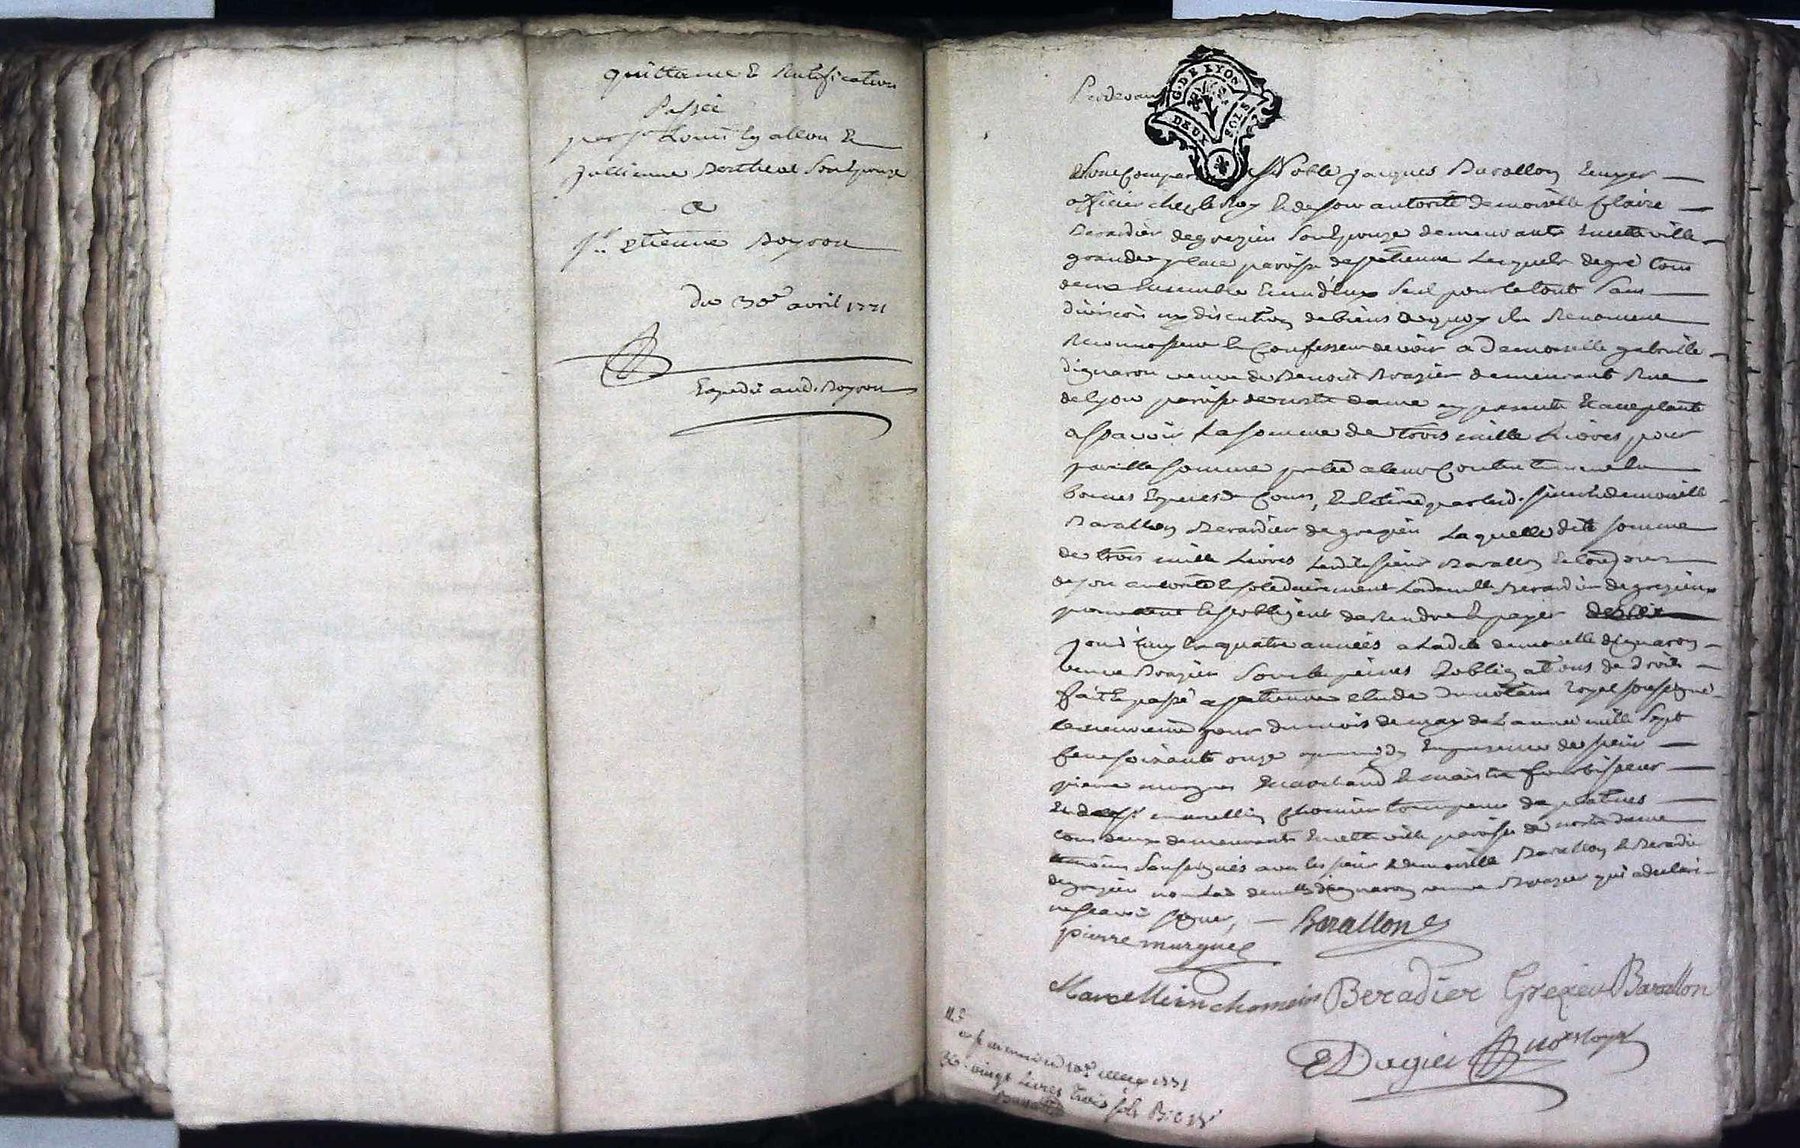 quittance & Ratification
Passée
par sr Louis Eyallon &
Jullienne Berthéat Son Epouze
a
sr. Etienne Boyron
du 30e avril 1771
Expedié aud. Boyron
Pardevant
G. DE LYON
DEUX SOLS
Sont Comparus Noble Jacques Barallon Ecuyer
officier chez le Roy & de son autorité demoiselle Claire
Berardier de grezieu Son Epouze demeurants En cette ville
grande place paroisse de st etienne Lesquels de gré tous
deux Ensemble & un d'Eux Seul pour le tout Sans
division ny discution de biens a quoy ils Renoncent
Reconnoissent & Confessent devoir a Demoiselle gabrielle
dignaron veuve de Benoit Brazier demeurant Rue
de Lyon paroisse de notre dame icy presente & acceptante
assavoir La somme de trois mille Livres pour
pareille somme pretée a leur Contentement En
bonnes Especes de Cours, & Retirée par led. sieur & demoiselle
Barallon Berardier de grezieu Laquelle dite somme
de trois mille Livres Ledit sieur Barallon & toujours
de son autorité & solidairement Lad. demlle Berardier de grezieu
promettent & s'obligent de Rendre & payer
jour En quatre années a Ladite demoiselle dignaron
veuve Brazier Sous les peines & obligations de droit
fait & passé a st etienne etude du notaire Royal soussigné
Le neuvieme jour du mois de may de L'année mille Sept
Cens soixante onze apres midy En presence de sieur
pierre murgues marchand & maitre fourbisseur
& de sr. marcellin Chomier trempeur de platines
tous deux demeurants En cette ville paroisse de notre dame
temoins Soussignés avec les sieur & demoiselle Barallon & Beradier
de grezieu non Lad. demlle dignaron veuve Brazier qui a declaré
ne sçavoir signer,
Barallon
pierre murgues
Marcellin chomier Beradier Grezieu Barallon
Dugier nore Royal
Cé a st etienne le 10e may 1771
Rs. vingt Livres trois sols